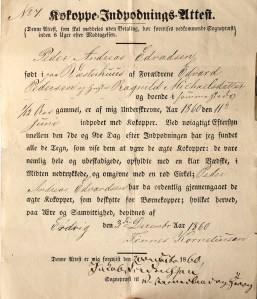 No 7
Kokoppe-Indpodnings-Attest.
(Denne Attest, som skal meddeles uden Betaling, bør forevises vedkommende Sognepræst
inden 6 Uger efter Modtagelsen.)
Peder Andreas Edvardsen
født i af Forældrene Edvard
Pedersen og Ragnild Michaelsdatter
og boende i
1/2 Aar gammel, er af mig Underskrevne, Aar 1860 den 11te
Juni indpodet med Kokopper. Ved nøiagtigt Eftersyn
imellem den 7de og 9de Dag efter Indpodningen har jeg fundet
alle de Tegn, som vise dem at være de ægte Kokopper: de vare
nemlig hele og ubeskadigede, opfyldte med en klar Vædske, i
Midten nedtrykkede, og omgivne med en rød Cirkel; Peder
Andreas Edvardsen har da ordentlig gjennemgaaet
de ægte Kokopper, som beskytte for Børnekopper, hvilket herved,
paa Ære og Samvittighed, bevidnes af
den 3die December Aar 1860
Tønnes Korneliussen
Denne Attest er mig forevist den 1860.
Sognepræst til